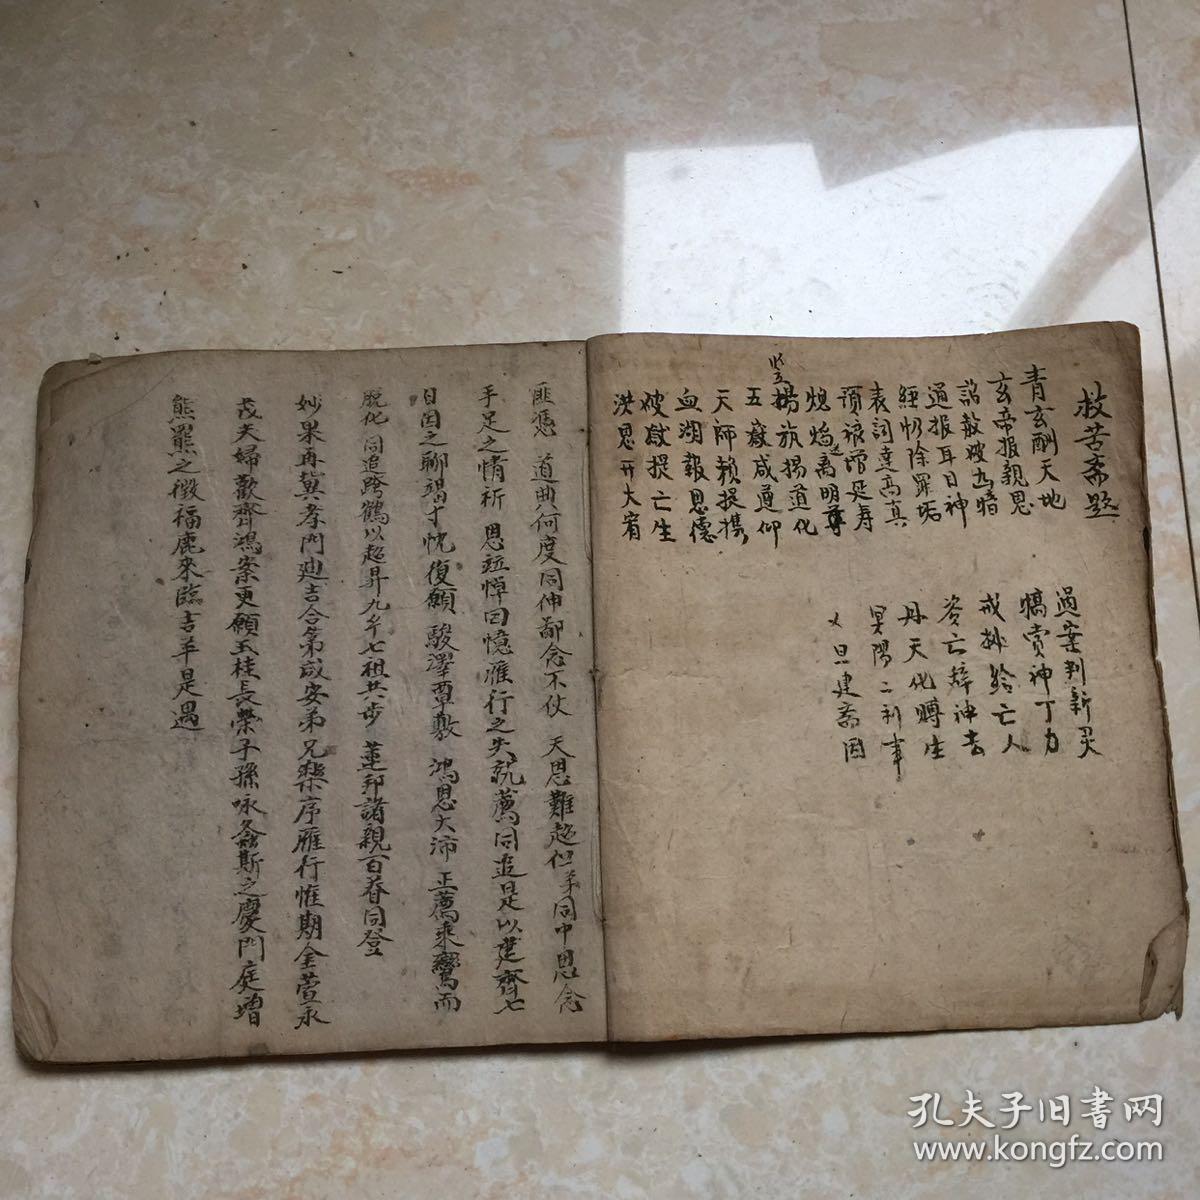 救苦斋題
青玄酬天地
玄帝报親恩
詔敖破幽暗
通报耳目神
經忏除罪垢
表詞達高真
頭禳增延寿
炮焰离明尊
竖揚旂揚道化
五嶽咸遵仰
天师賴提携
血湖報恩德
破獄提亡生
洪恩开大宥
過案判新买
犒賞神丁力
戒排給亡人
资亡辞神去
丹天化賻生
冥陽二利事
乂旦建斋因
匪憑 道典何度同伸鄙念不仗 天恩難超但某同中恩念
手足之情祈 恩並悼曰憶雁行之失就薦同追是以建齊七
日因之聊竭寸忱復願 駿澤覃敷 鴻恩大沛 正薦乘鸞而
脱化 同追跨鶴以超昇九乡七祖共步 蓮邦諸親百眷同登
妙果再冀孝門迪吉合第咸安弟兄樂序雁行惟期金萱永
茂夫婦歡齊鴻案更願玉桂長榮子孫咏螽斯之慶門庭增
熊羆之徵福鹿來臨吉羊是遇
孔夫子旧書网
www.kongfz.com